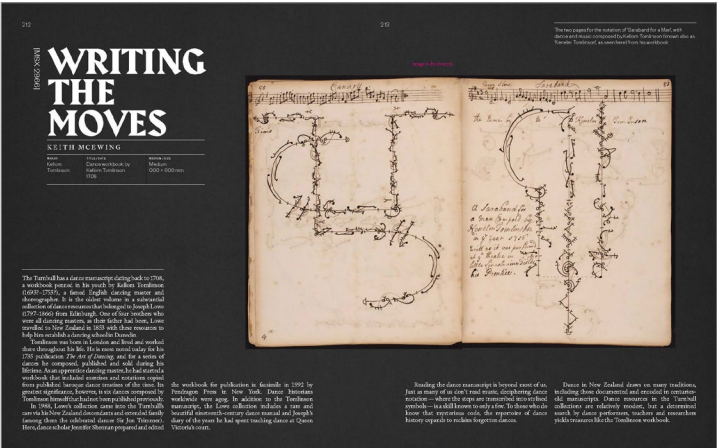 212
213
The two pages for the notation of 'Saraband for a Man', with
dance and music composed by Kellom Tomlinson (known also as
'Kenelm Tomlinson', as seen here) from his workbook
[MSX 2966]
WRITING
THE
MOVES
KEITH MCEWING
MAKER
TITLE/DATE
MEDIUM/SIZE
Kellom
Tomlinson
Dance workbook by
Kellom Tomlinson
1708
Medium
000 × 000 mm
Saraband
A Saraband for
The Turnbull has a dance manuscript dating back to 1708,
a workbook penned in his youth by Kellom Tomlinson
(1693?–1753?), a famed English dancing master and
choreographer. It is the oldest volume in a substantial
collection of dance resources that belonged to Joseph Lowe
(1797–1866) from Edinburgh. One of four brothers who
were all dancing masters, as their father had been, Lowe
travelled to New Zealand in 1853 with these resources to
help him establish a dancing school in Dunedin.
Tomlinson was born in London and lived and worked
there throughout his life. He is most noted today for his
1735 publication The Art of Dancing, and for a series of
dances he composed, published and sold during his
lifetime. As an apprentice dancing master, he had started a
workbook that included exercises and notations copied
from published baroque dance treatises of the time. Its
greatest significance, however, is six dances composed by
Tomlinson himself that had not been published previously.
In 1988, Lowe's collection came into the Turnbull's
care via his New Zealand descendants and extended family
(among them the celebrated dancer Sir Jon Trimmer).
Here, dance scholar Jennifer Shennan prepared and edited
the workbook for publication in facsimile in 1992 by
Pendragon Press in New York. Dance historians
worldwide were agog. In addition to the Tomlinson
manuscript, the Lowe collection includes a rare and
beautiful nineteenth-century dance manual and Joseph's
diary of the years he had spent teaching dance at Queen
Victoria's court.
Reading the dance manuscript is beyond most of us.
Just as many of us don't read music, deciphering dance
notation — where the steps are transcribed into stylised
symbols — is a skill known to only a few. To those who do
know that mysterious code, the repertoire of dance
history expands to reclaim forgotten dances.
Dance in New Zealand draws on many traditions,
including those documented and encoded in centuries-
old manuscripts. Dance resources in the Turnbull
collections are relatively modest, but a determined
search by dance performers, teachers and researchers
yields treasures like the Tomlinson workbook.